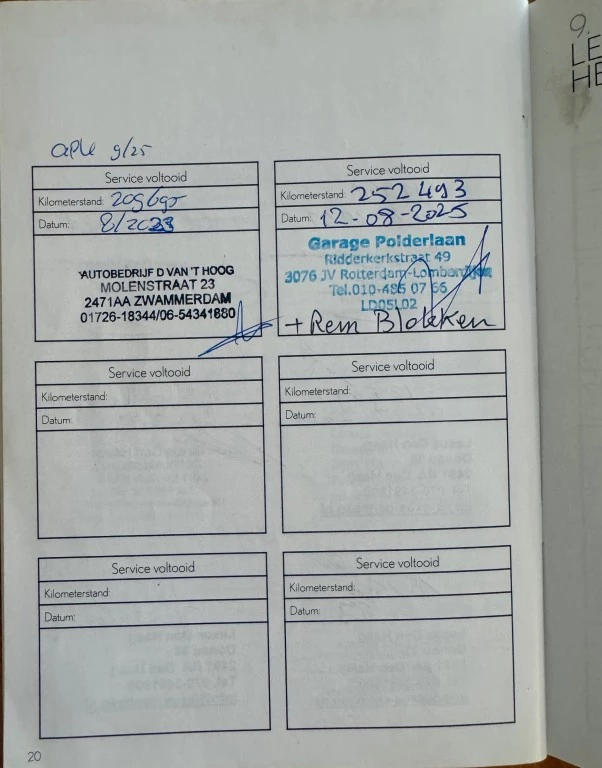 9.
LE
HE
apk 9/25
Service voltooid
Kilometerstand: 209690
Datum: 8/2023
AUTOBEDRIJF D VAN 'T HOOG
MOLENSTRAAT 23
2471AA ZWAMMERDAM
01726-18344/06-54341880
Service voltooid
Kilometerstand: 252 493
Datum: 12-08-2025
Garage Polderlaan
Ridderkerkstraat 49
3076 JV Rotterdam-Lombardijen
Tel.010-495 07 66
LD05L02
+ Rem Blokken
Service voltooid
Kilometerstand:
Datum:
Service voltooid
Kilometerstand:
Datum:
Service voltooid
Kilometerstand:
Datum:
Service voltooid
Kilometerstand:
Datum:
20